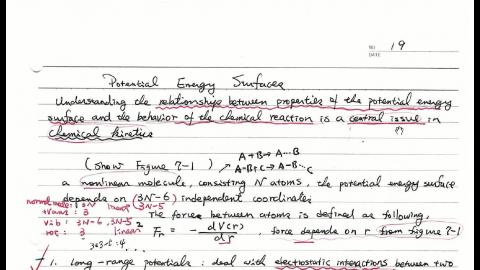 NO. 19
DATE
Potential Energy Surfaces
Understanding the relationships between properties of the potential energy
surface and the behavior of the chemical reaction is a central issue in
chemical kinetics
A+B → A…B
(show Figure 7-1) A-B+C → A-B…C
a nonlinear molecule, consisting N atoms, the potential energy surface
depends on (3N-6) independent coordinates
normal mode: 3N linear (3N-5)
trans: 3 The force between atoms is defined as following,
vib: 3N-6, 3N-5
rot: 3, 2 Fr = - dV(r)/dr, force depends on r from figure 7-1
3×3-5=4
1. Long-range potentials: deal with electrostatic interactions between two